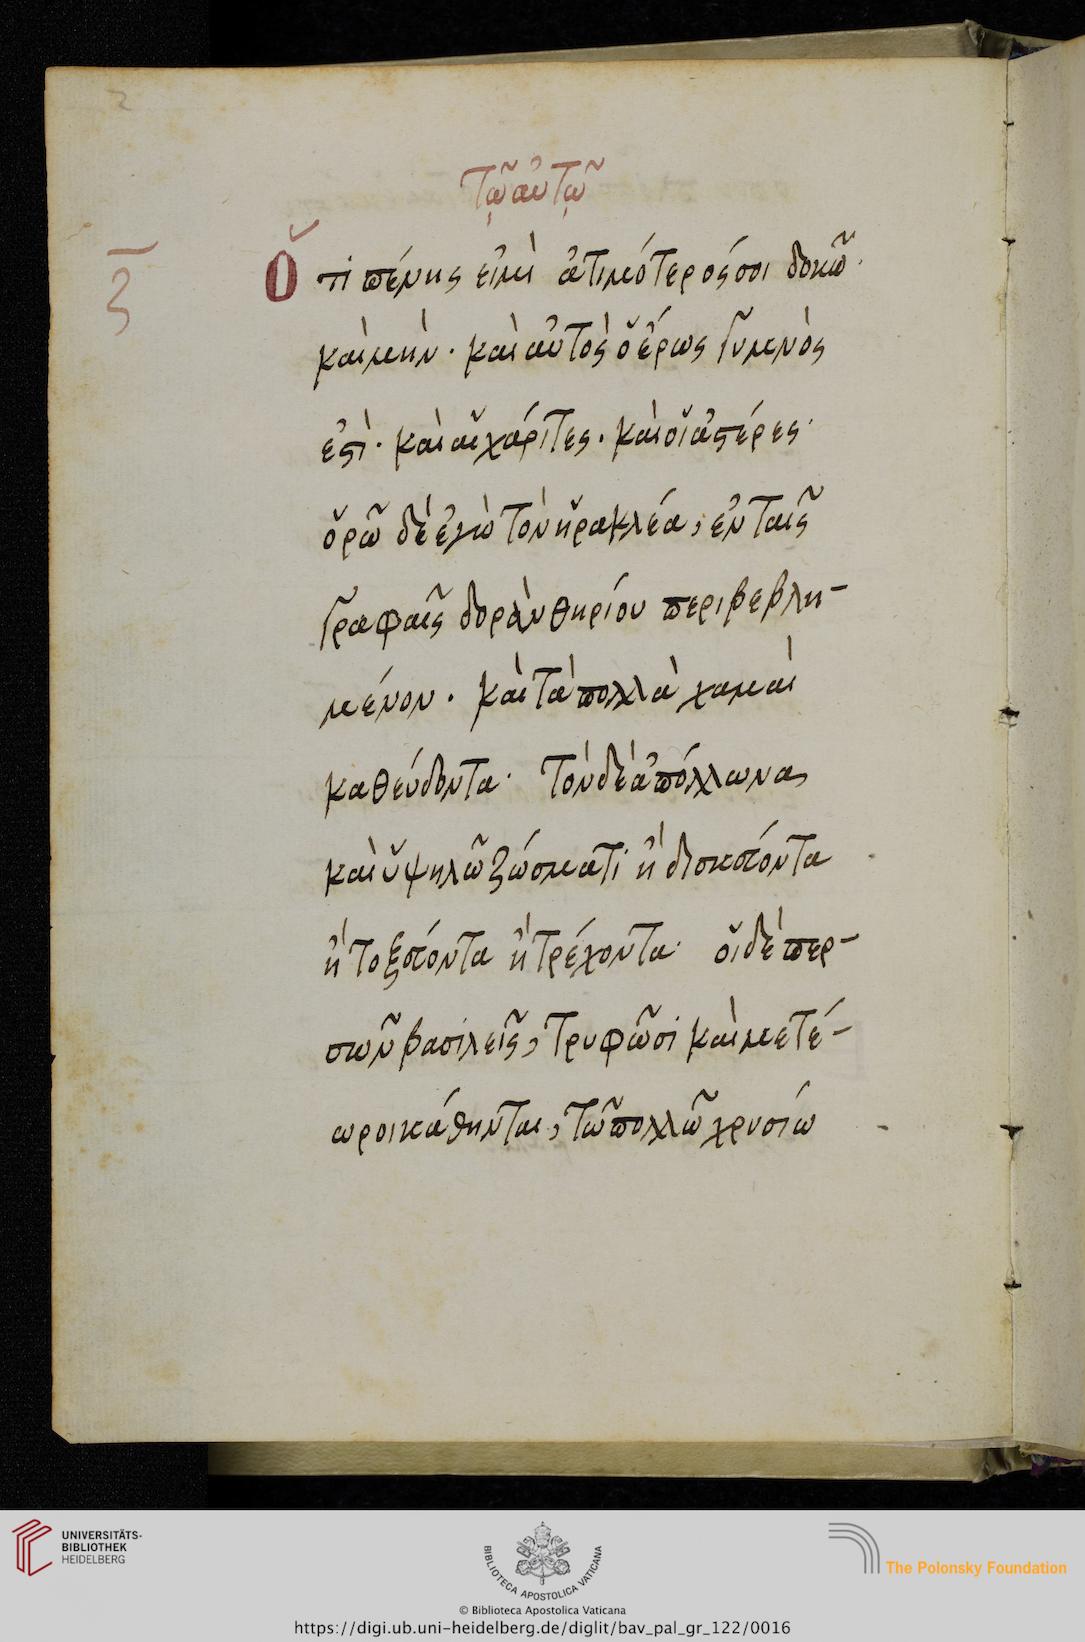 2
τῷ αὐτῷ
ζ
Ὅτι πένης εἰμὶ ἀτιμότερός σοι δοκῶ·
καὶ μὴν · καὶ αὐτὸς ὁ ἔρως γυμνὸς
ἐστὶ · καὶ αἱ χάριτες · καὶ οἱ ἀστέρες·
ὁρῶ δὲ ἐγὼ τὸν ἡρακλέα, ἐν ταῖς
γραφαῖς δορὰν θηρίου περιβεβλη-
μένον · καὶ τὰ πολλὰ χαμαὶ
καθεύδοντα· τὸν δὲ ἀπόλλωνα
καὶ ὑψηλῶ ζώσματι ἢ δισκεύοντα
ἢ τοξεύοντα ἢ τρέχοντα· οἱ δὲ περ-
σῶν βασιλεῖς, τρυφῶσι καὶ μετέ-
ωροι κάθηνται, τῶ πολλῶ χρυσίω
UNIVERSITÄTS-
BIBLIOTHEK
HEIDELBERG
BIBLIOTECA APOSTOLICA VATICANA
The Polonsky Foundation
© Biblioteca Apostolica Vaticana
https://digi.ub.uni-heidelberg.de/diglit/bav_pal_gr_122/0016